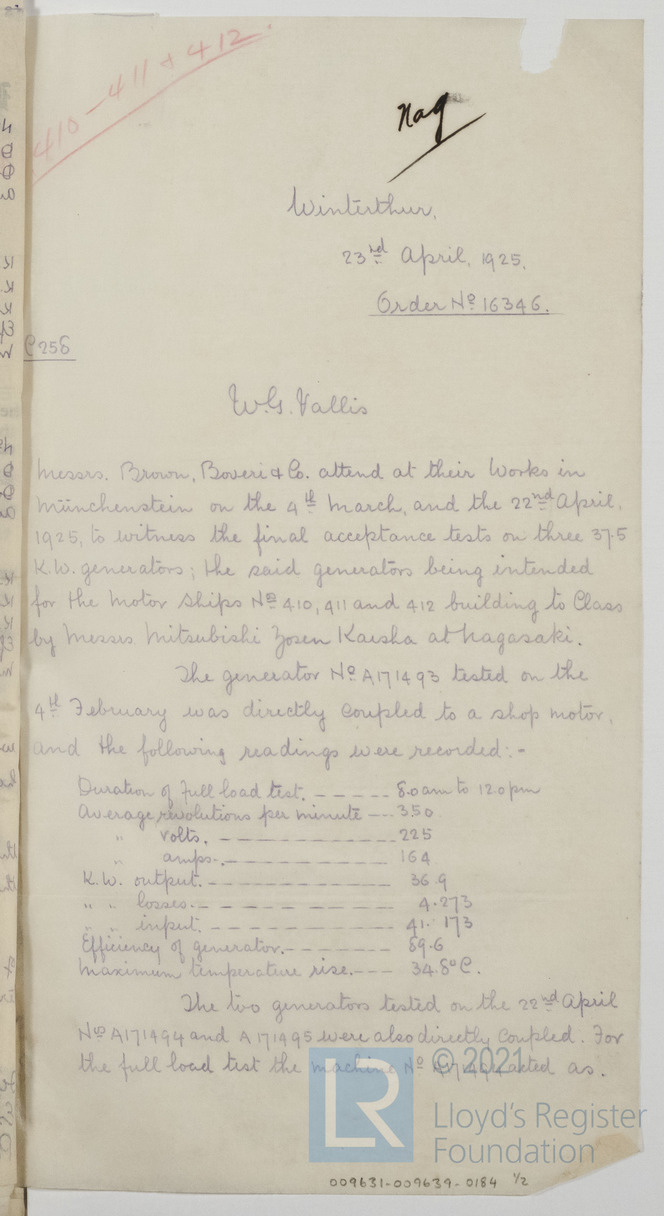 410-411 & 412.
Nag
Winterthur,
23rd April, 1925.
Order No 16346.
C258
W.G. Vallis
Messrs. Brown, Boveri & Co. attend at their Works in
Münchenstein on the 4th March, and the 22nd April,
1925, to witness the final acceptance tests on three 37.5
K.W. generators; the said generators being intended
for the Motor Ships No 410, 411 and 412 building to Class
by Messrs Mitsubishi Zosen Kaisha at Nagasaki.
The generator No A171493 tested on the
4th February was directly coupled to a shop motor,
and the following readings were recorded:-
Duration of full load test. ----- 8.0am to 12.0pm
Average revolutions per minute --- 350.
" volts. ---------- 225
" amps. ---------- 164
K.W. output. ---------- 36.9
" " losses. ---------- 4.273
" " input. ---------- 41.173
Efficiency of generator. ------ 89.6
Maximum temperature rise. --- 34.8°C.
The two generators tested on the 22nd April
Nos A171494 and A171495 were also directly coupled. For
the full load test the machine No acted as.
© 2021
LR
Lloyd's Register
Foundation
009631-009639-0184 1/2